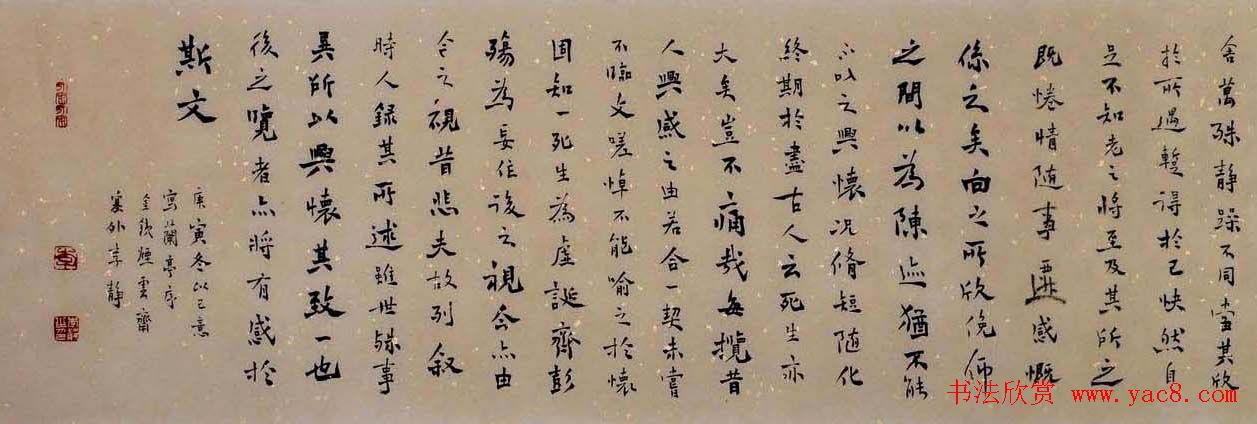 舍萬殊静躁不同當其欣
於所遇暫得於己快然自
足不知老之將至及其所之
既惓情随事遷感慨
係之矣向之所欣俛仰
之間以為陳迹猶不能
不以之興懷况脩短随化
終期於盡古人云死生亦
大矣豈不痛哉每攬昔
人興感之由若合一契未嘗
不臨文嗟悼不能喻之於懷
固知一死生為虚誕齊彭
殤為妄作後之視今亦由
今之視昔悲夫故列叙
時人録其所述雖世殊事
異所以興懷其致一也
後之覽者亦將有感於
斯文
庚寅冬以己意
寫蘭亭序
於煙雲齋
塞外李静
书法欣赏 www.yac8.com